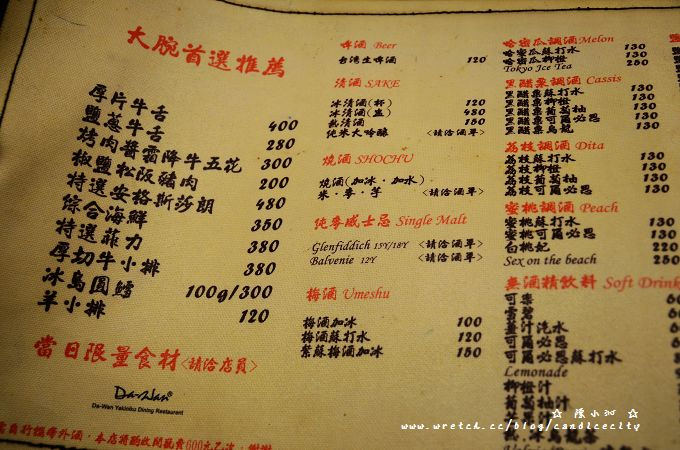 大腕首選推薦
厚片牛舌 400
鹽蔥牛舌 280
烤肉醬霜降牛五花 300
椒鹽松阪豬肉 200
特選安格斯莎朗 480
綜合海鮮 350
特選菲力 380
厚切牛小排 380
冰島圓鱈 100g/300
羊小排 120
當日限量食材<請洽店員>
Da-Wan®
Da-Wan Yakiniku Dining Restaurant
啤酒 Beer
台灣生啤酒 120
清酒 SAKE
冰清酒(杯) 120
冰清酒(壺) 480
熱清酒 150
純米大吟釀 <請洽酒單>
燒酒 SHOCHU
燒酒(加冰·加水)
米·麥·芋 <請洽酒單>
純麥威士忌 Single Malt
Glenfiddich 15Y/18Y <請洽酒單>
Balvenie 12Y
梅酒 Umeshu
梅酒加冰 100
梅酒蘇打水 120
紫蘇梅酒加冰 150
哈密瓜調酒 Melon
哈密瓜蘇打水 130
哈密瓜柳橙 130
Tokyo Ice Tea 250
黑醋栗調酒 Cassis
黑醋栗蘇打水 130
黑醋栗柳橙 130
黑醋栗葡萄柚 130
黑醋栗可爾必思 130
黑醋栗烏龍 130
荔枝調酒 Dita
荔枝蘇打水 130
荔枝柳橙 130
荔枝葡萄柚 130
荔枝可爾必思 130
蜜桃調酒 Peach
蜜桃蘇打水 130
蜜桃可爾必思 130
白桃妃 220
Sex on the beach 250
無酒精飲料 Soft Drink
可樂
雪碧
薑汁汽水
可爾必思
可爾必思蘇打水
Lemonade
柳橙汁
葡萄柚汁
芒果汁
熱·冰烏龍茶
☆ 陳小沁 ☆
www.wretch.cc/blog/candicecity